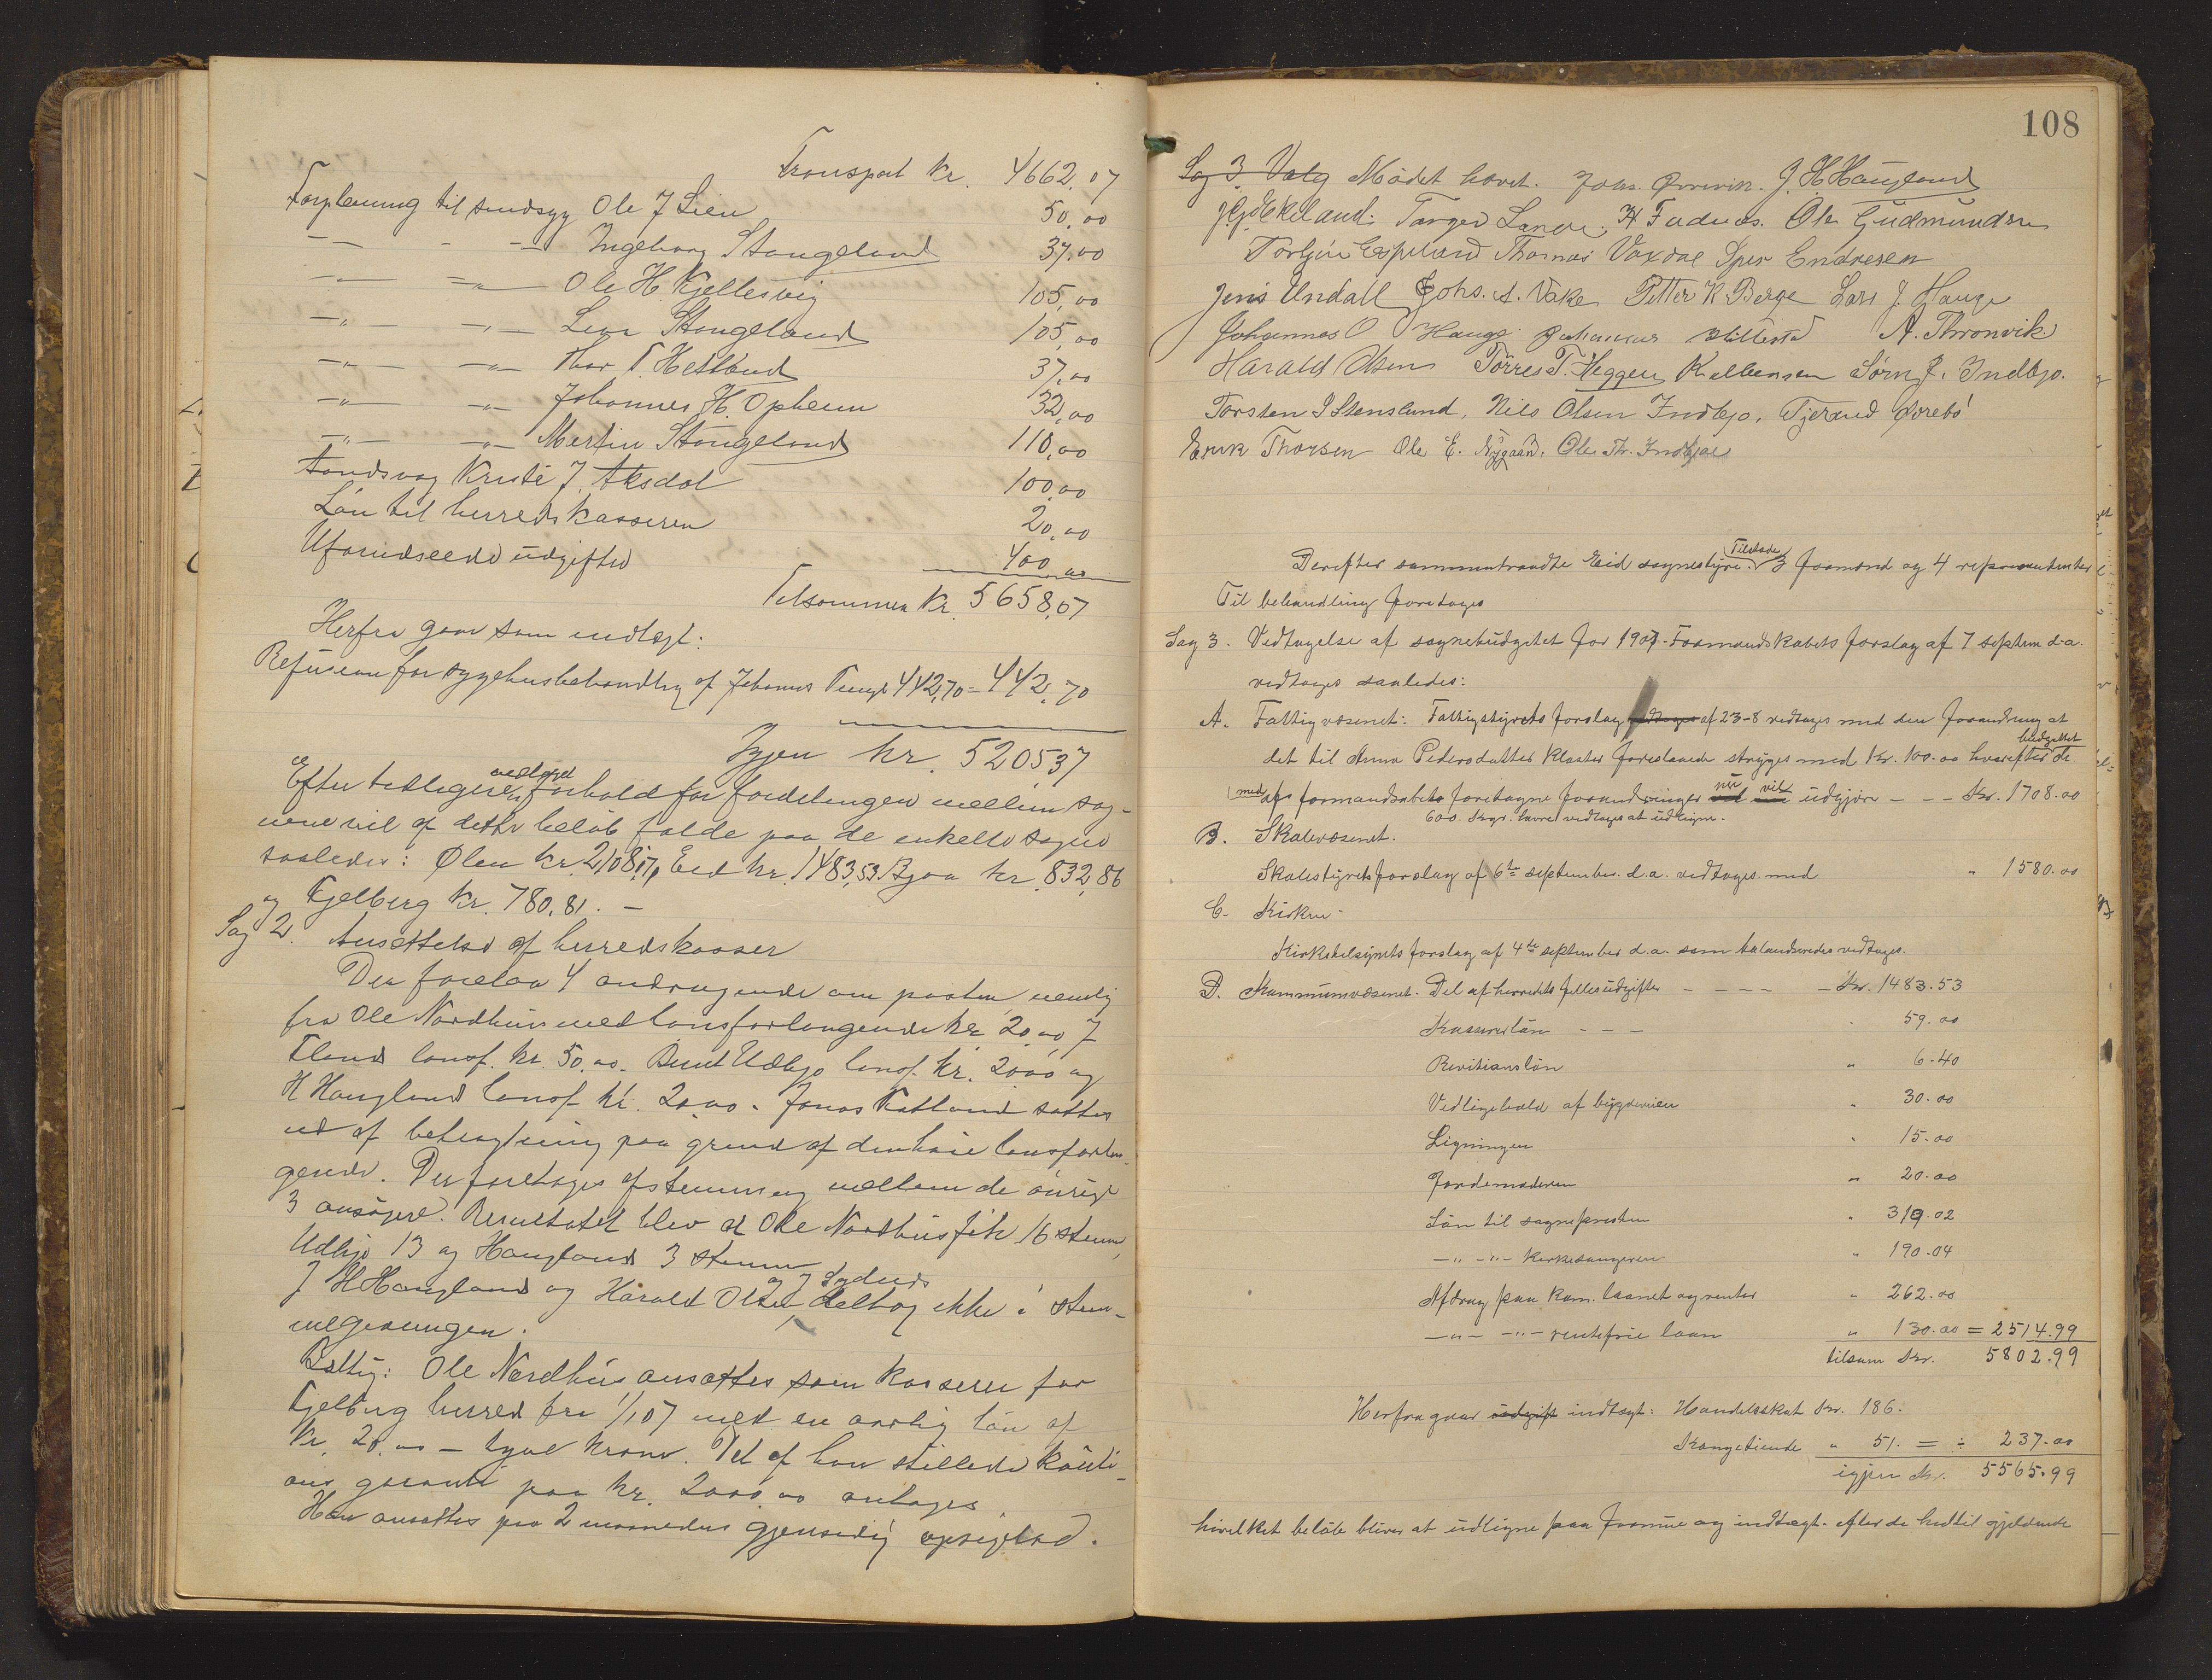 Transport Kr. 4662,07
Forpleining til sindsyg Ole J Lien 50,00
— — - — Ingeborg Stangeland 37,00
— " — — " — Ole H. Kjellesvig 105,00
— " — — " — Lina Stangeland 105,00
— " — — " — Thor T. Hetland 37,00
— " — — " — Johannes H. Opheim 32,00
— " — — " — Martin Stangeland 110,00
Aandsvag Kristi J. Aksdal 100,00
Lön til herredskasseren 20,00
Uforudseede udgifter 400,00
Tilsammen Kr. 5658,07
Herfra gaar som indtægt:
Refusion for sygehusbehandling af Johannes 442,70 = 442,70
Igjen Kr. 5205,37
Efter tidligere vedtaget forhold for fordelingen mellem sog-
nene vil af dette beløb falde paa de enkelte sogne
saaledes: Ølen kr. 2108,17, Eid kr. 1483,53. Bjoa kr. 832,86
og Fjelberg kr. 780,81. —
Sag 2. Ansættelse af herredskasser
Der forelaa 4 andragende om posten, nemlig
fra Ole Nordhus med lønsforlangende kr. 20,00, J
Fland lønsf. kr. 50,00. Bernt Udbjo lønsf. kr. 20,00 og
H Haugland lønsf. kr. 20,00. Jonas Fatland sattes
ud af betragtning paa grund af den høie lønsforlan-
gende. Der foretages afstemning mellem de øvrige
3 ansøgere. Resultatet blev at Ole Nordhus fik 16 stemmer,
Udbjo 13 og Haugland 3 stemmer
J H Haugland og Harald Olsen og J deltog ikke i stem-
megivningen.
Vedtag: Ole Nordhus ansættes som kasserer for
Fjelberg herred fra 1/1 07 med en aarlig løn af
Kr. 20,00 — tyve kroner. Det af ham stillede kauti-
ons garanti paa kr. 2000,00 antages.
Han ansættes paa 2 maaneders gjensidig opsigelse.
108
Sag 3. Valg Mødet hævet. Johs. Øvrevik. J. H. Haugland
J. G. Ekeland. Torger Lande. H Fadnes. Ole Gudmundsen
Torbjørn Espeland Thomas Vaxdal Sjur Endresen
Jens Undall Johs. A. Vake Petter K. Berge Lars J. Hauge
Johannes O Hauge Johannes A. Thronvik
Harald Olsen Törres T. Heggen K. Sørn J. Indbjo.
Torsten I Stensland, Nils Olsen Indbjo, Tjerand Øvrebö
Erik Thorsen Ole E. Nygaard. Ole Th. Indbjoe
Derefter sammentraadte Eid sognestyre. Tilstede 3 formænd og 4 repræsentanter
Til behandling foretages
Sag 3. Vedtagelse af sognebudgetet for 1907. Formandskabets forslag af 7 septem d.a.
vedtages saaledes:
A. Fattigvæsenet: Fattigstyrets forslag vedtages af 23-8 vedtages med den forandring at
det til Anna Pedersdatter Kloster foreslaaede stryges med kr. 100.00 hvorefter budgettet
med de af formandskabets foretagne forandringer nu vil udgjøre – – – Kr. 1708.00
600 kr. vedtages at udligne.
B. Skolevæsenet.
Skolestyrets forslag af 6te september d.a. vedtages med " 1580.00
C. Kirken -
Kirketilsynets forslag af 4de september d.a. som balanseredes vedtages.
D. Kommunevæsenet. Del af herredets fellesudgifter – – – – – Kr. 1483.53
Kassererløn – – – " 59.00
Revisionsløn " 6.40
Vedligehold af bygdeveien " 30.00
Ligningen " 15.00
Jordemoderen " 20.00
Løn til sognepresten " 319.02
— " — " — Kirkesangeren " 190.04
Afdrag paa kom. laanet og renter " 262.00
— " — — " — rentefrie laan " 130.00 = 2514.99
tilsam Kr. 5802.99
Herfra gaar udgift indtægt: Handelsskat Kr. 186.
Kongetiende " 51. = ÷ 237.00
igjen Kr. 5565.99
hvilket beløb bliver at udligne paa formue og indtægt. efter de hidtil gjeldende